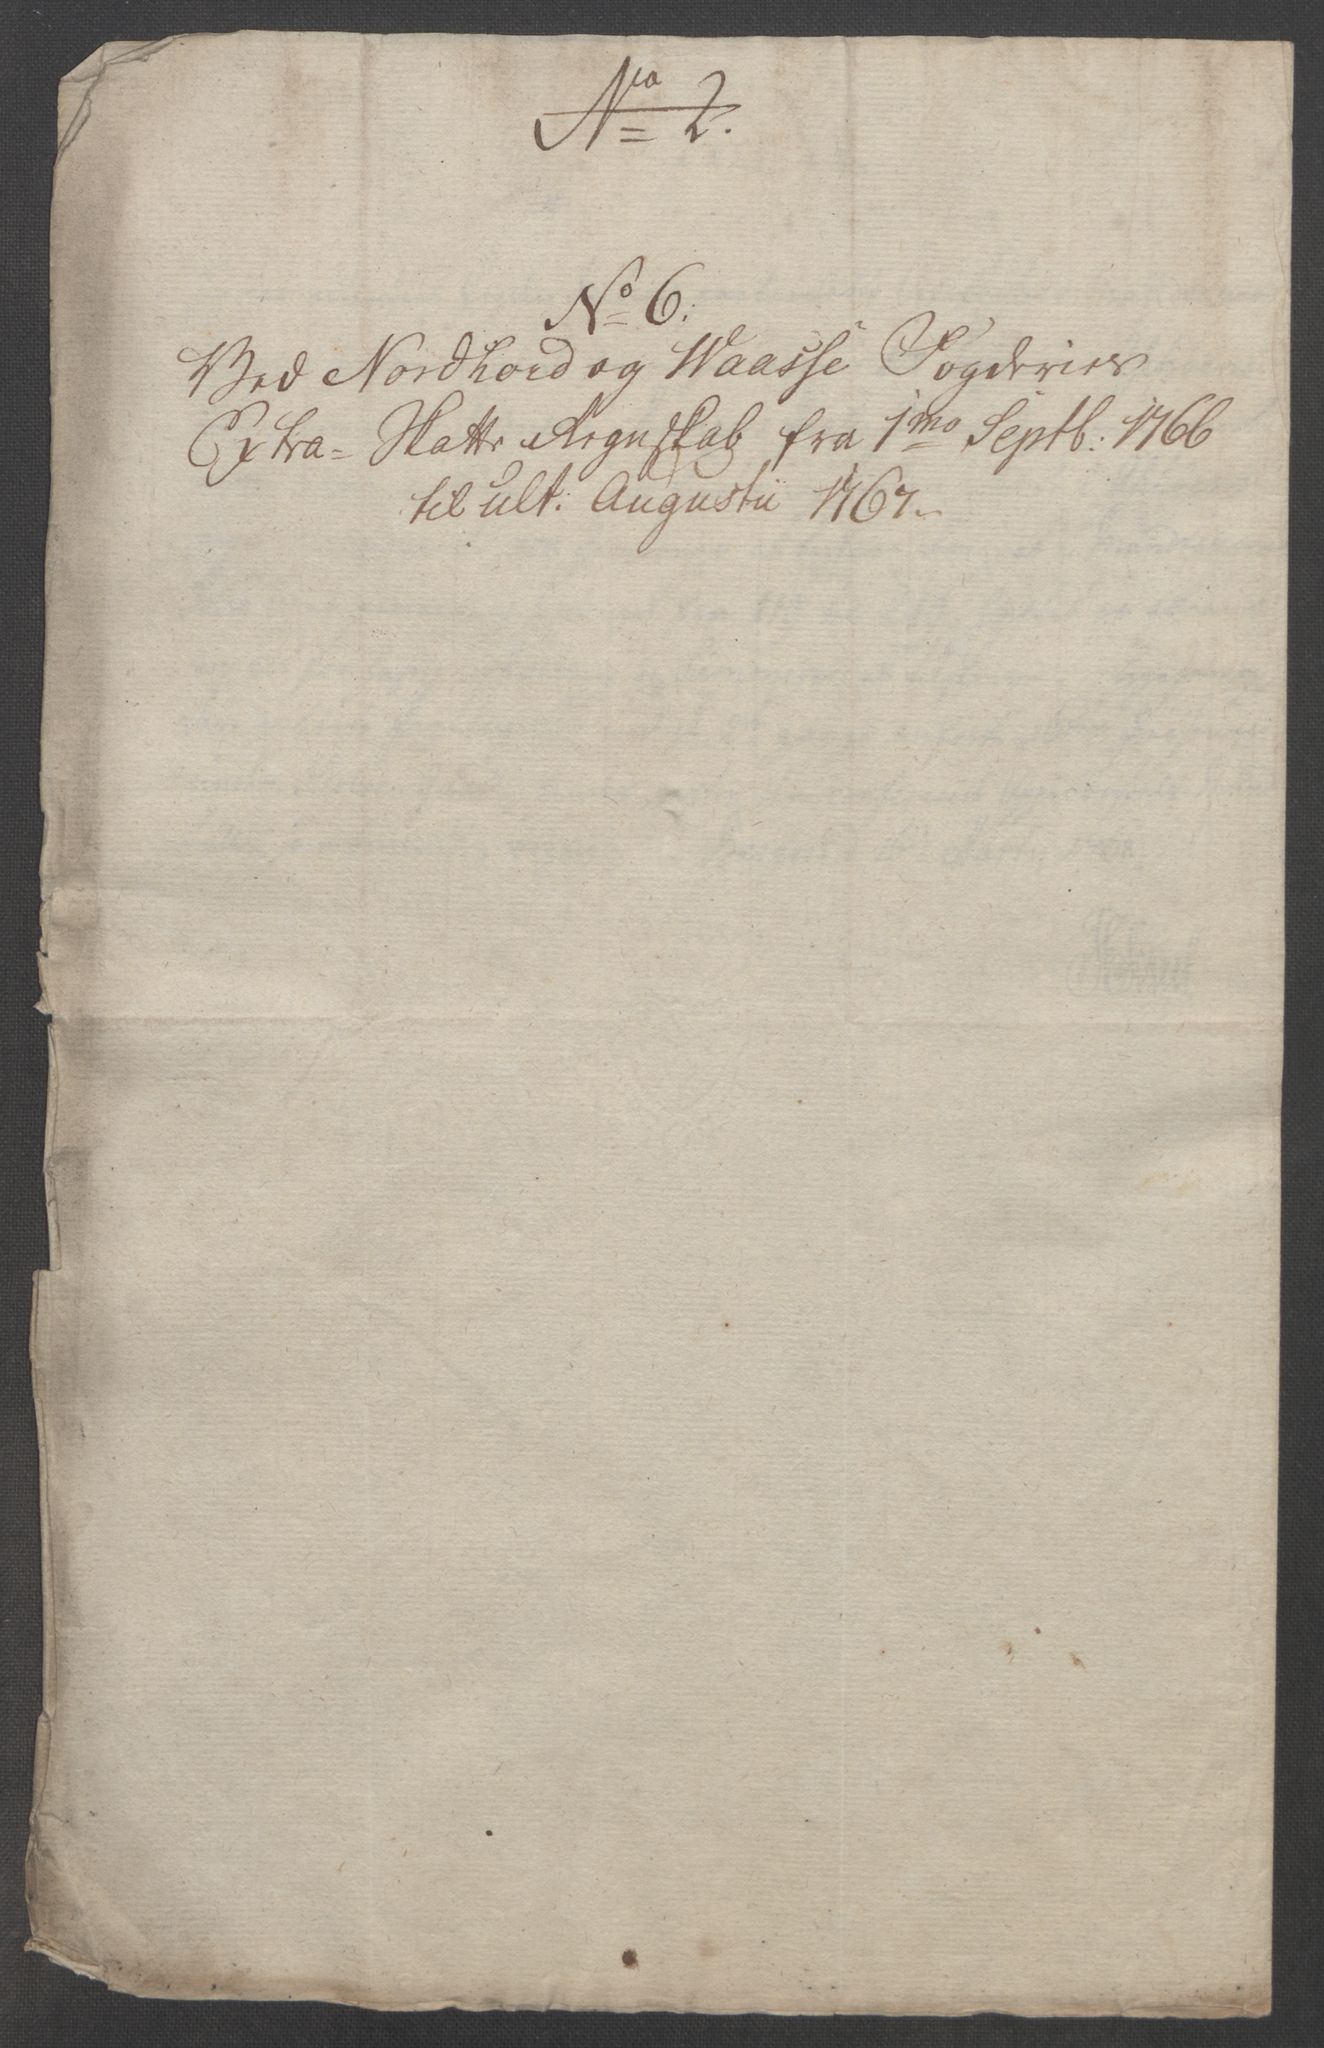 No 2.
No 6.
Ved Nordhord og Waasse Fogderies
Extra-Skatte Regnskab fra 1mo Septb: 1766
til ult: Augustii 1767.